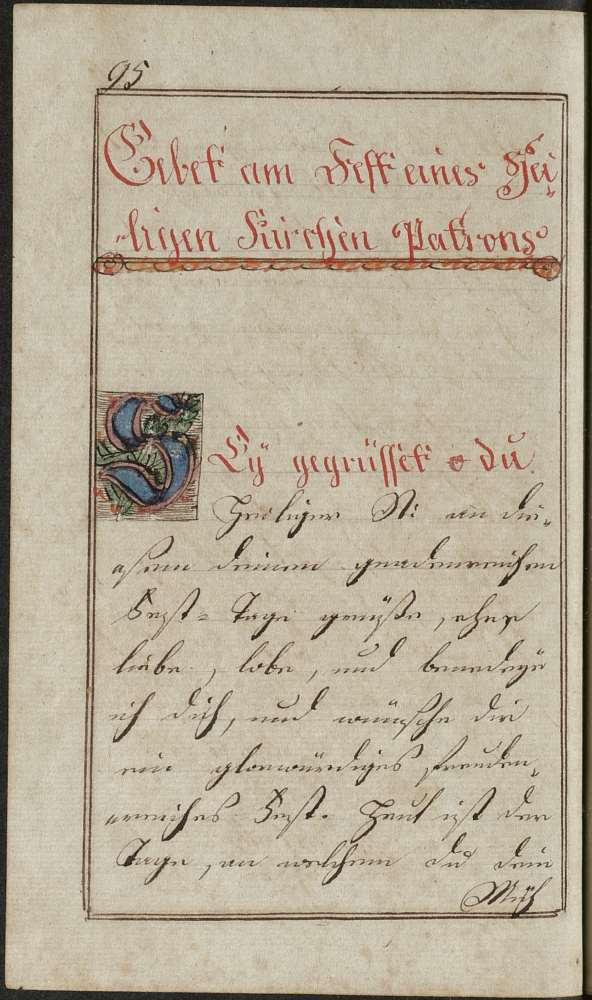 95
Gebett am Fest eines Hei-
-ligen Kirchen Patrons
Sey gegrüsset o du
Heiliger St: an die-
ssem deinem gnadenreichen
Fest=Tage grüsse, ehre
liebe, lobe, und benedeye
ich dich, und wünsche dir
ein glorwürdiges, freuden-
reiches Fest. Heut ist der
Tage, an welchem du dein